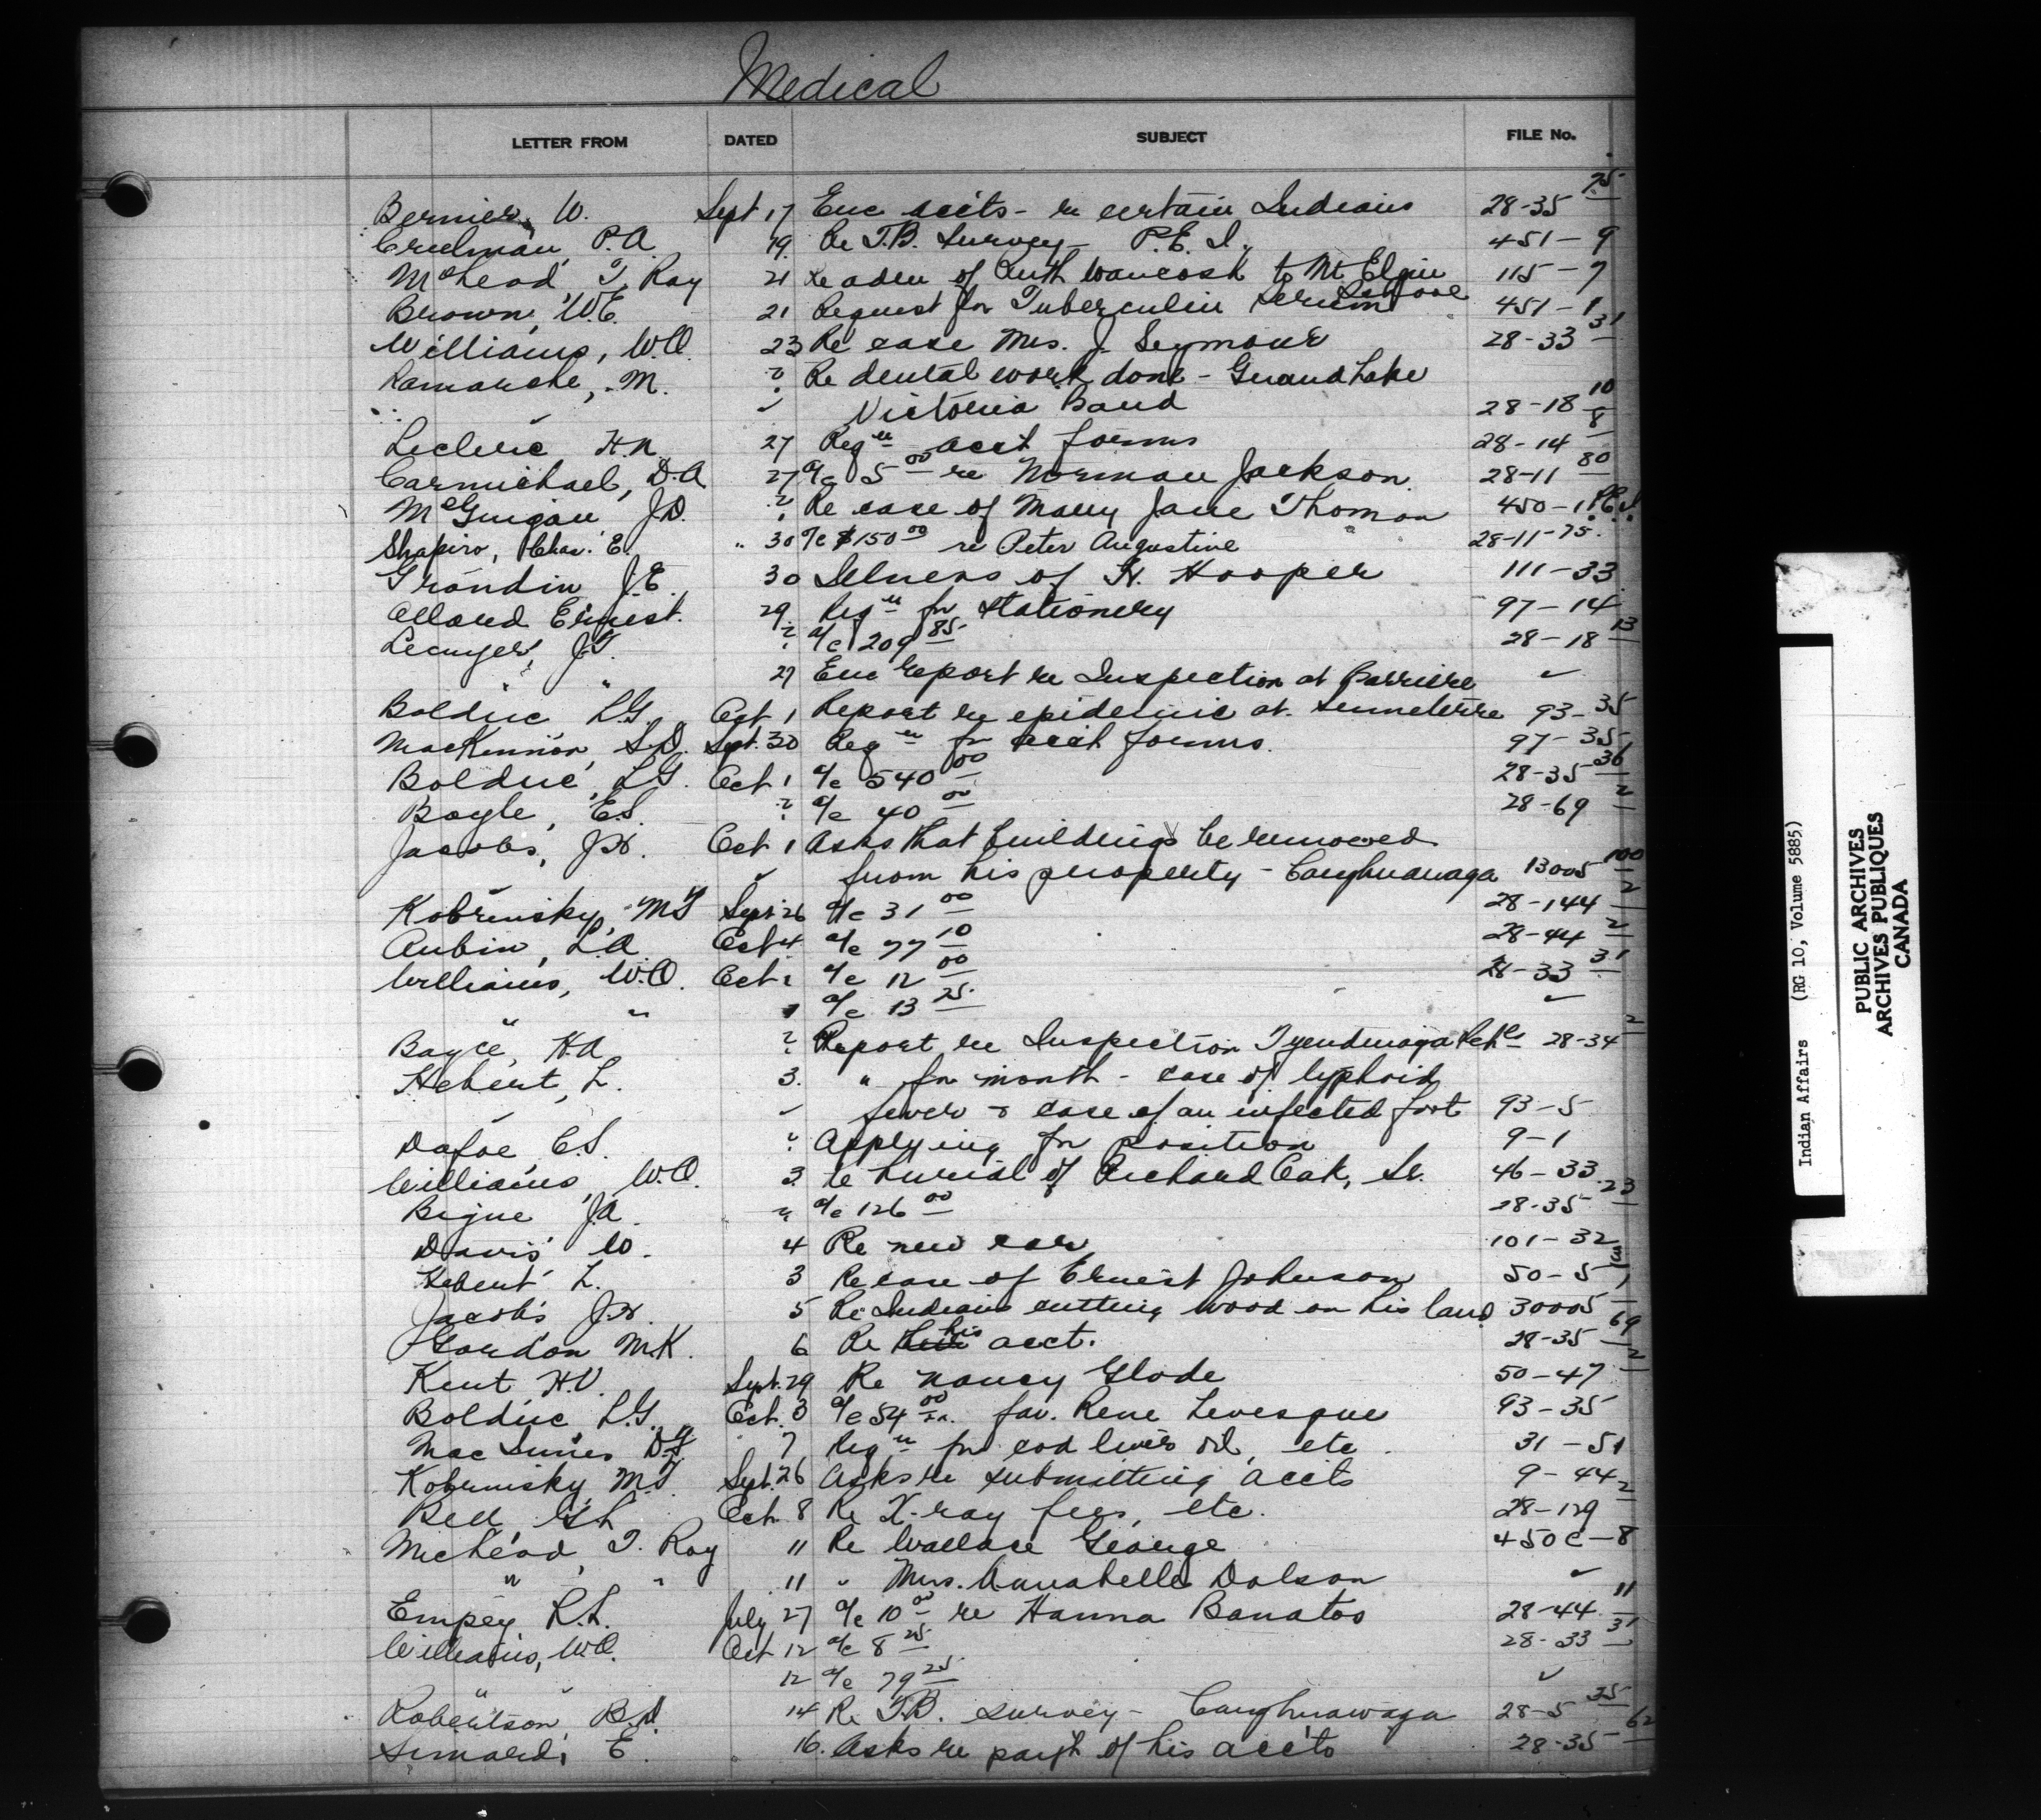 Medical
LETTER FROM DATED SUBJECT FILE No.
Bernier, W. Sept 17 Enc accts - re certain Indians 28-35 75
Creelman, P.A. 19 Re T.B. Survey - P.E.I. 451-9
McLeod, T. Ray 21 Re adm of Ruth to Mt Elgin School 115-7
Brown, W.E. 21 Request for Tuberculin serum 451-1
Williams, W.O. 23 Re case Mrs. J. Seymour 28-33 31
Lamarche, M. " Re dental work done - Grand Lake
Victoria Band 28-18 10
Leclerc H.N. 27 Reqn acct forms 28-14 8
Carmichael, D.A. 27 a/c 5 00 re Norman Jackson 28-11 80
McGuigan J.D. " Re case of Mary Jane Thomas 450-1 P.E.I.
Shapiro, Chas. E. " 30 a/c $150 00 re Peter Augustine 28-11-75
Grondin J.E. 30 Illness of H. Hooper 111-33
Allard Ernest. 29 Reqn for stationery 97-14
Lecuyer, J.T. " a/c 209 85 28-18 13
" " 27 Enc report re Inspection at Barriere ✓
Bolduc, L.G. Oct 1 Report re epidemic at Senneterre 93-35
MacKinnon, S.D. Sept. 30 Reqn for acct forms. 97-35
Bolduc, L.G. Oct 1 a/c 540 00 28-35 36
Boyle, E.S. " a/c 40 00 28-69 2
Jacobs, J.H. Oct 1 Asks that buildings be removed
from his property - Caughnawaga 13005 100
Kobrinsky, M.T. Sept 26 a/c 31 00 28-144 2
Aubin, L.A. Oct 4 a/c 77 10 28-44 2
Williams, W.O. Oct 1 a/c 12 00 28-33 31
" " 1 a/c 13 25 ✓
Boyce, H.A. " Report re Inspection Tyendinaga Schls 28-34 2
Hebert, L. 3. " for month - case of typhoid
fever & case of an infected foot 93-5
Dafoe, C.S. " Applying for position 9-1
Williams, W.O. 3 Re burial of Richard Oak, Sr. 46-33
Bigue J.A. " a/c 126 00 28-35 23
Davis W. 4 Re new car 101-32
Hebert L. 3 Re case of Ernest Johnson 50-5
Jacobs J.H. 5 Re Indians cutting wood on his land 30005
Gordon M.K. 6 Re his acct. 28-35 69
Kent H.V. Sept. 29 Re Nancy Glode 50-47 2
Bolduc L.G. Oct. 3 a/c 54 00 fav. Rene Levesque 93-35
MacInnes D.F. 7 Reqn for cod liver oil, etc. 31-51
Kobrinsky M.T. Sept. 26 Asks re submitting accts 9-44
Bell G.L. Oct. 8 Re X-ray fees, etc. 28-129 2
McLeod, T. Ray 11 Re Wallace George 450C-8
" " 11 " Mrs. Annabelle Dolson ✓
Empey R.L. July 27 a/c 10 00 re Hanna Banatos 28-44 11
Williams, W.O. Oct 12 a/c 8 25 28-33 31
" " 12 a/c 79 25 ✓
Robertson, B.D. 14 Re T.B. survey - Caughnawaga 28-5 35
Simard, E. 16. Asks re paym't of his accts 28-35 62
Indian Affairs (RG 10, Volume 5885)
PUBLIC ARCHIVES
ARCHIVES PUBLIQUES
CANADA